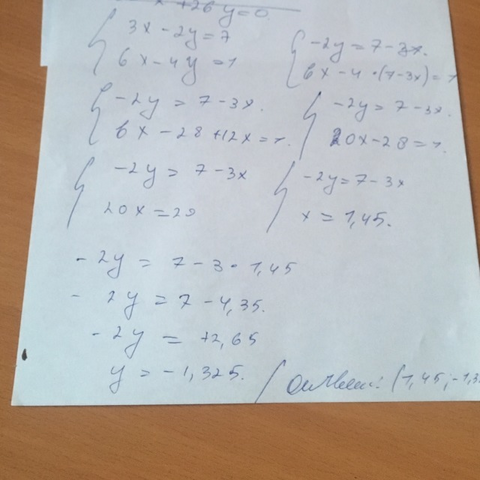 x+26y=0
{ 3x-2y=7
6x-4y=1
{ -2y=7-3x.
6x-4·(7-3x)=1
{ -2y=7-3x.
6x-28+12x=1.
{ -2y=7-3x.
20x-28=1.
{ -2y=7-3x
20x=29
{ -2y=7-3x
x=1,45.
-2y=7-3·1,45
-2y=7-4,35.
-2y=+2,65
y=-1,325.
Ответ: (1,45;-1,3